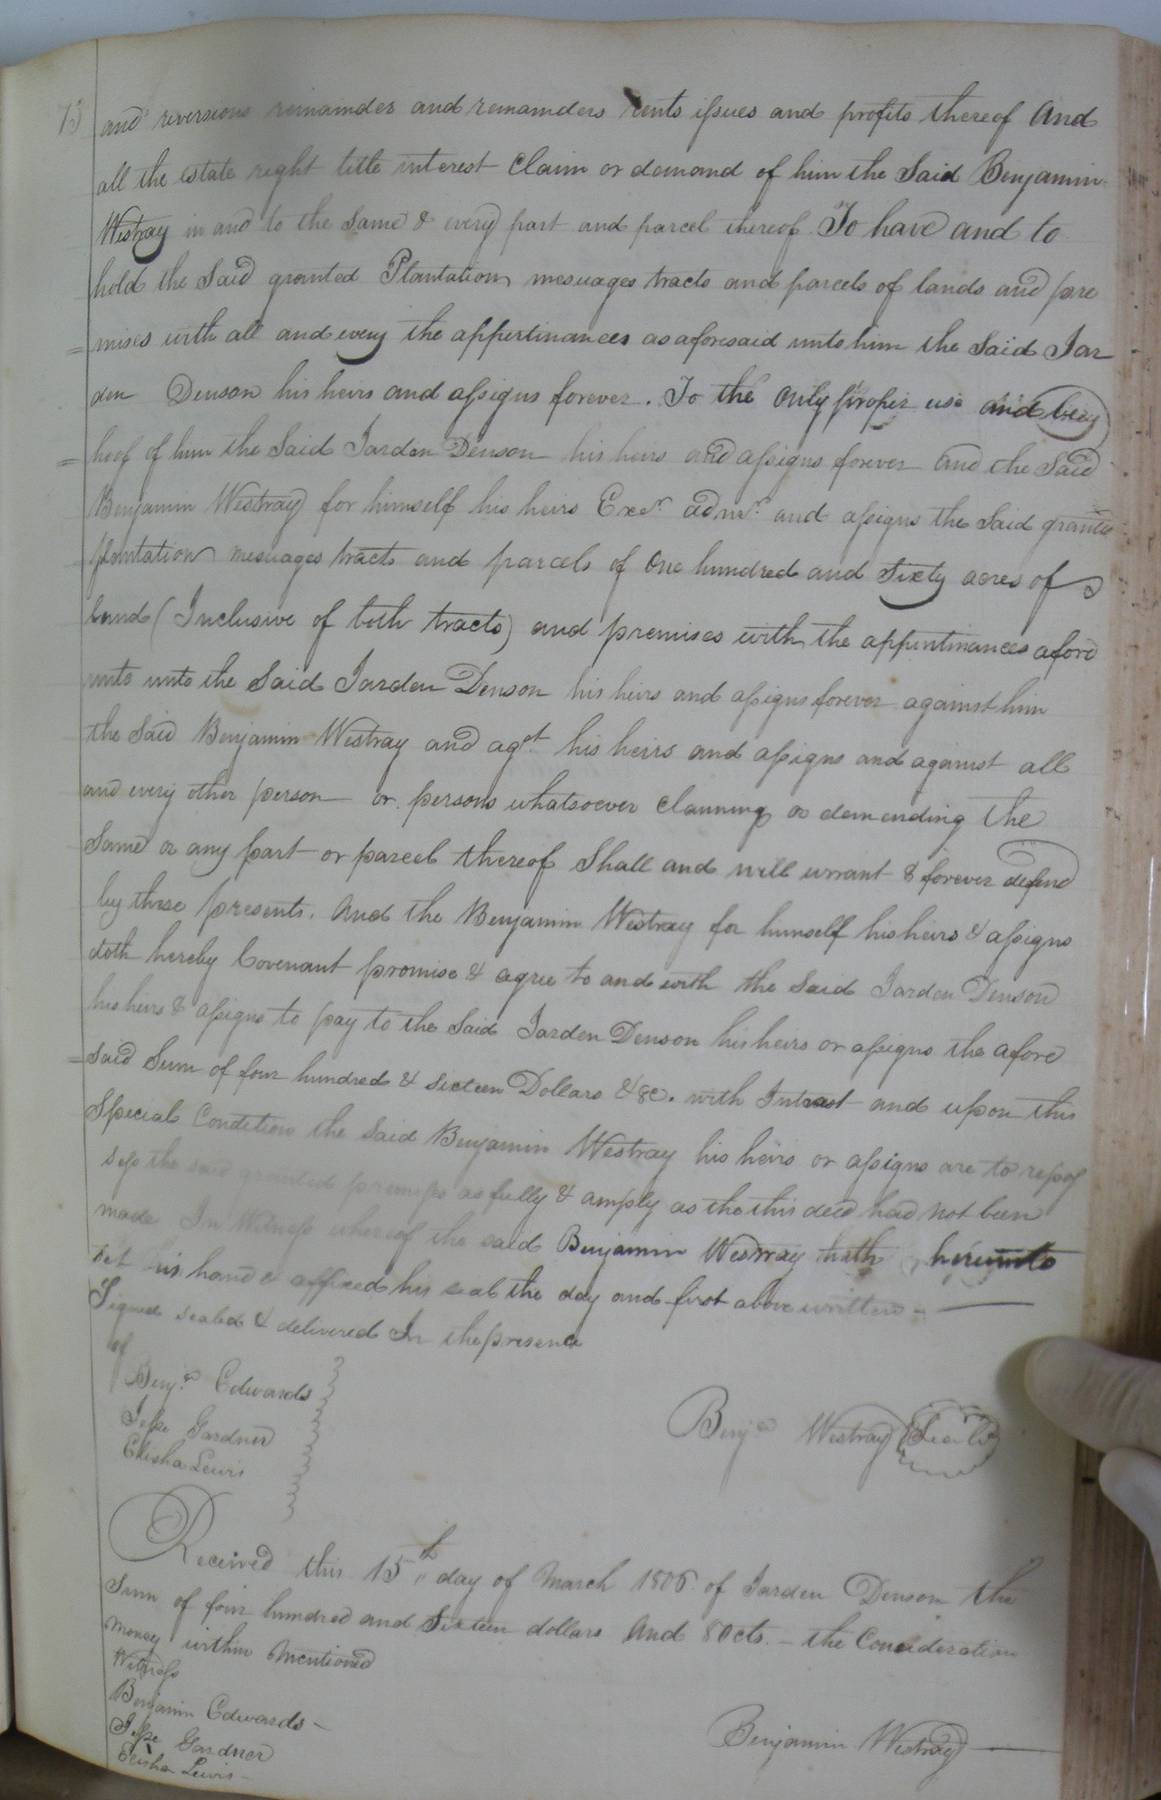 73
and reversions remainder and remainders rents issues and profits thereof And
all the estate right title interest Claim or demand of him the Said Benjamin
Westray in and to the Same & every part and parcel thereof To have and to
hold the Said granted Plantation mesuages tracts and parcels of lands and pre
mises with all and every the appertinances as aforesaid unto him the Said Jar
den Denson his heirs and assigns forever. To the only proper use and being
hoof of him the Said Jarden Denson his heirs and assigns forever And the Said
Benjamin Westray for himself his heirs Exrs. admrs. and assigns the Said granted
plantation mesuages tracts and parcels of One hundred and Sixty acres of
land (Inclusive of both tracts) and premises with the appertinances afore
unto unto the Said Jarden Denson his heirs and assigns forever against him
the Said Benjamin Westray and agst his heirs and assigns and against all
and every other person or persons whatsoever claiming or demending the
Same or any part or parcel thereof Shall and will wrrant & forever defend
by these presents. And the Benjamin Westray for himself his heirs & assigns
doth hereby Covenant promise & agree to and with the Said Jarden Denson
his heirs & assigns to pay to the Said Jarden Denson his heirs or assigns the afore
Said Sum of four hundred & Sixteen Dollars &8c. with Intrest and upon this
Special Condition the Said Benjamin Westray his heirs or assigns are to reposs
sess the said granted premises as fully & amply as tho this deed had not been
made In Witness whereof the said Benjamin Westray hath hereunto
Set his hand & affixed his seal the day and first above written
Signed sealed & delivered In the presence
of
Benja. Edwards
Jesse Gardner
Elisha Lewis
Benja Westray (Seal)
Received this 15th day of March 1806 of Jarden Denson the
Sum of four hundred and Sixteen dollars And 80cts. - the Consideration
money within mentioned
Witness
Benjamin Edwards -
Jesse Gardner
Elisha Lewis -
Benjamin Westray